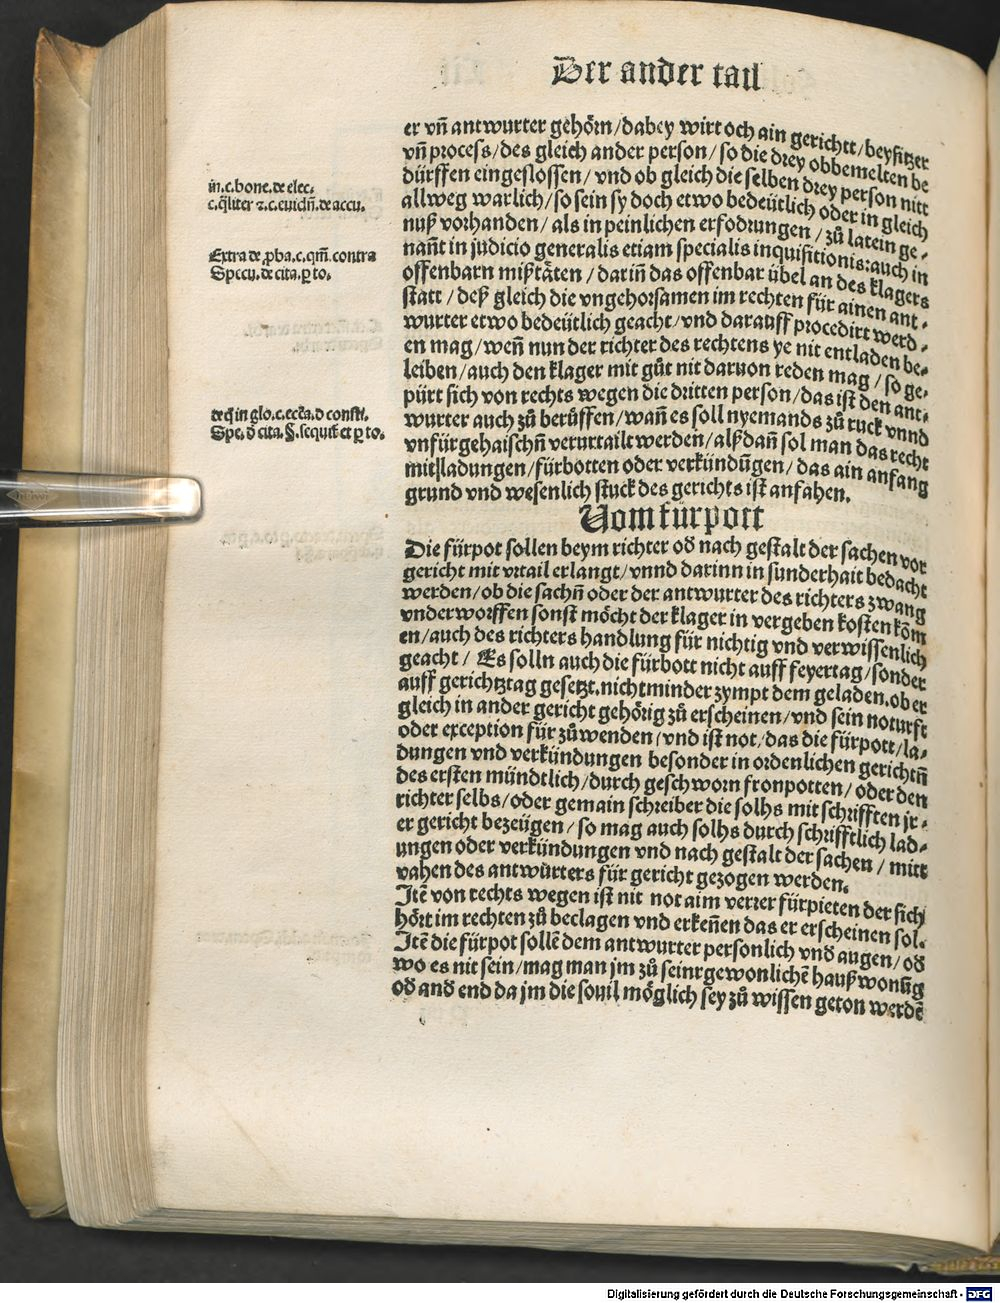 Der ander tail
er vñ antwurter gehörn/dabey wirt och ain gerichtt/beysitzer
vñ process/des gleich ander person/so die drey obbemelten be
dürffen eingeslossen/vnd ob gleich die selben drey person nitt
allweg warlich/so sein sy doch etwo bedeütlich oder in gleich
nuß vorhanden/als in peinlichen erfodrungen/zů latein ge⸗
nañt in judicio generalis etiam specialis inquisitionis:auch in
offenbarn mißtäten/dariñ das offenbar übel an des klagers
statt/deß gleich die vngehorsamen im rechten für ainen ant⸗
wurter etwo bedeütlich geacht/vnd darauff procedirt werd⸗
en mag/weñ nun der richter des rechtens ye nit entladen be⸗
leiben/auch den klager mit gůt nit daruon reden mag/so ge⸗
pürt sich von rechts wegen die dritten person/das ist den ant⸗
wurter auch zů berůffen/wañ es soll nyemands zů ruck vnnd
vnfürgehaischñ verurtailt werden/alßdañ sol man das recht
mit ladungen/fürbotten oder verkündũgen/das ain anfang
grund vnd wesenlich stuck des gerichts ist anfahen.
in.c.bone.de elec.
c.q̃liter z.c.euidñ.de accu.
Extra de ꝓba.c.qm̃.contra
Specu.de cita.ꝑ to.
de q̃ in glo.c.ecc̃a.d consti.
Spe.d cita.§.sequit̃ et ꝑ to.
Vom fürpott
Die fürpot sollen beym richter od nach gestalt der sachen vor
gericht mit vrtail erlangt/vnnd darinn in sunderhait bedacht
werden/ob die sachñ oder der antwurter des richters zwang
vnderworffen sonst möcht der klager in vergeben kosten kõm
en/auch des richters handlung für nichtig vnd verwissenlich
geacht/ Es solln auch die fürbott nicht auff feyertag/sonder
auff gerichtztag gesetzt.nichtminder zympt dem geladen.ob er
gleich in ander gericht gehörig zů erscheinen/vnd sein noturft
oder exception für zůwenden/vnd ist not/das die fürpott/la⸗
dungen vnd verkündungen besonder in ordenlichen gerichtñ
des ersten mündtlich/durch geschworn fronpotten/oder den
richter selbs/oder gemain schreiber die solhs mit schrifften jr⸗
er gericht bezeügen/so mag auch solhs durch schrifftlich lad⸗
ungen oder verkündungen vnd nach gestalt der sachen/mitt
vahen des antwürters für gericht gezogen werden.
Itē von rechts wegen ist nit not aim verrer fürpieten der sich
hört im rechten zů beclagen vnd erkeñen das er erscheinen sol.
Itē die fürpot sollē dem antwurter personlich vnd augen/od
wo es nit sein/mag man jm zů seinr gewonlichē hauß wonũg
od and end da jm die souil möglich sey zů wissen geton werdē
Digitalisierung gefördert durch die Deutsche Forschungsgemeinschaft - DFG